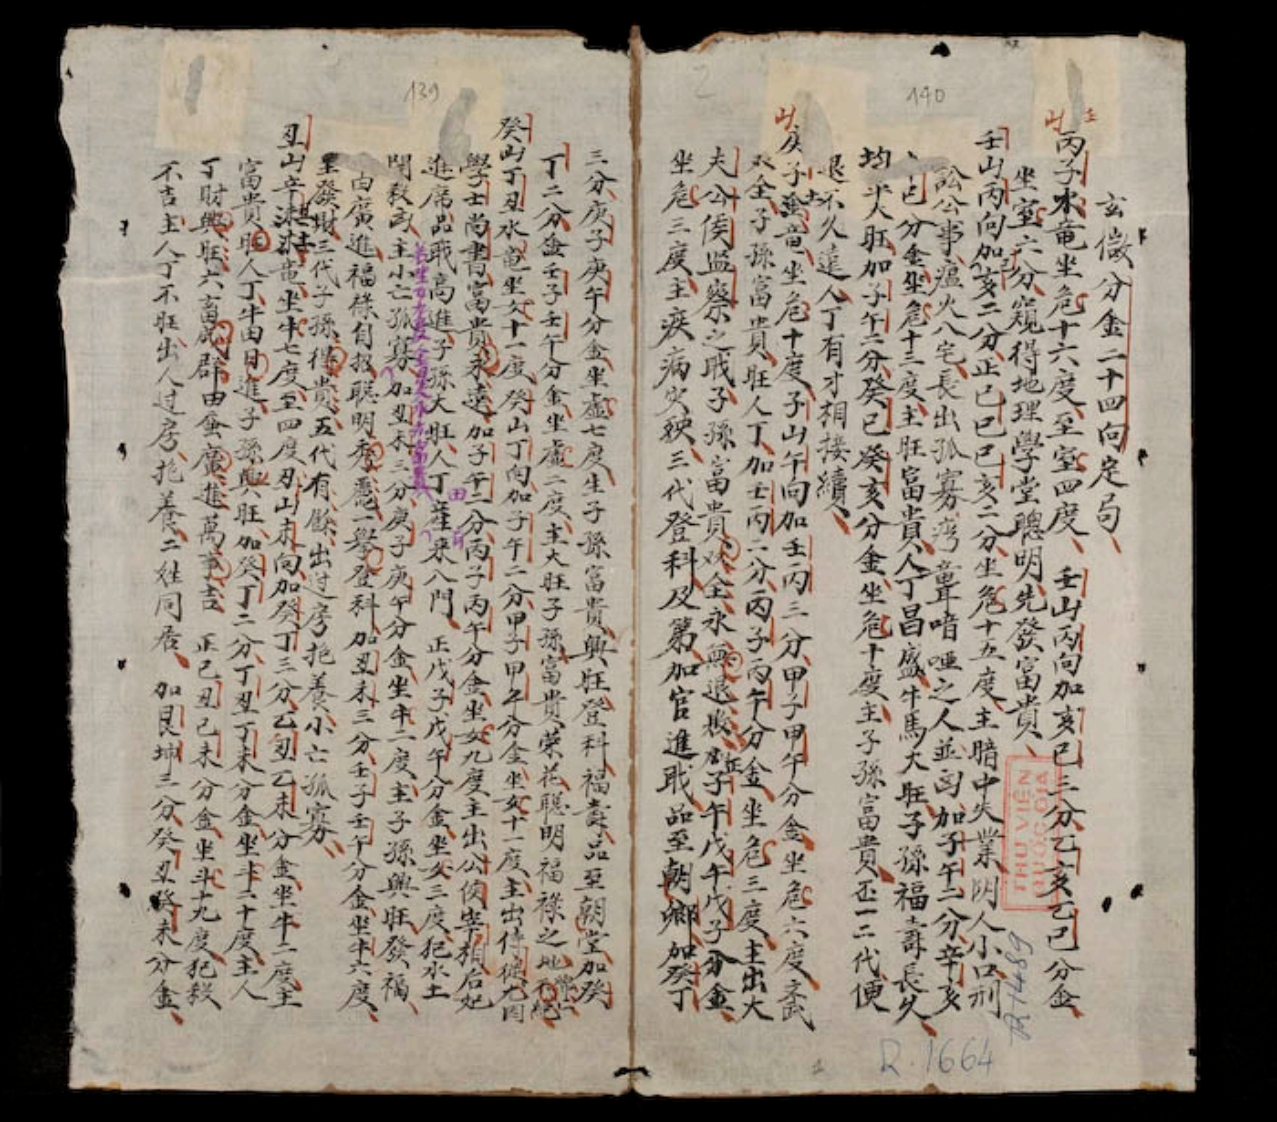 140
玄微分金二十四向定局
丙子水竜坐危十六度至室四度 壬山丙向加亥巳三分乙亥乙巳分金
坐室六分窺得地理學堂聰明先發富貴
壬山丙向加亥二分正己巳己亥二分坐危十五度主暗中失業陰人小口刑
訟公事瘟火八宅長出孤寡 聾喑啞之人並 加子午二分辛亥
辛巳分金坐危十三度主旺富貴人丁昌盛牛馬大旺子孫福壽長久
均平大旺加子午二分癸巳癸亥分金坐危十度主子孫富貴 一二代便
退不久遠人丁有才相接續
庚子 竜坐危十度子山午向加壬丙三分甲子甲午分金坐危六度文武
双全子孫富貴旺人丁加壬丙二分丙子丙午分金坐危三度主出大
夫公侯監察之職子孫富貴双全永無退敗 子午戊午戊子分金
坐危三度主疾病災殃三代登科及第加官進職品至朝鄉加癸丁
139
三分庚子庚午分金坐虛七度生子孫富貴興旺登科福壽品至朝堂加癸
丁二分金壬子壬午分金坐虛二度主大旺子孫富貴榮花聰明福祿之地
癸山丁丑水竜坐女十一度癸山丁向加子午二分甲子甲午分金坐女十一度主出
學士尚書富貴永遠加子午二分丙子丙午分金坐女九度主出公侯宰相后妃
進席品職高進子孫大旺人丁 產業八門 正戊子戊午分金坐女三度犯水土
閉殺 主小亡孤寡加丑未三分庚子庚午分金坐牛二度主子孫興旺發福
由廣進福祿自招聰明秀 一舉登科加丑未三分壬子壬午分金坐牛六度
里發財三代子孫得貴五代有餘出过房抱養小亡孤寡
丑山辛 竜坐牛七度至四度丑山未向加癸丁三分乙丑乙未分金坐牛二度主
富貴旺人丁牛由日進子孫興旺加癸丁二分丁丑丁未分金坐斗二十度主人
丁財興旺六畜成群田蚕廣進萬事吉 正己丑己未分金坐斗十九度犯殺
不吉主人丁不旺出人过房抱養二姓同居 加艮坤三分癸丑癸未分金
THƯ VIỆN
QUỐC GIA
R.1664